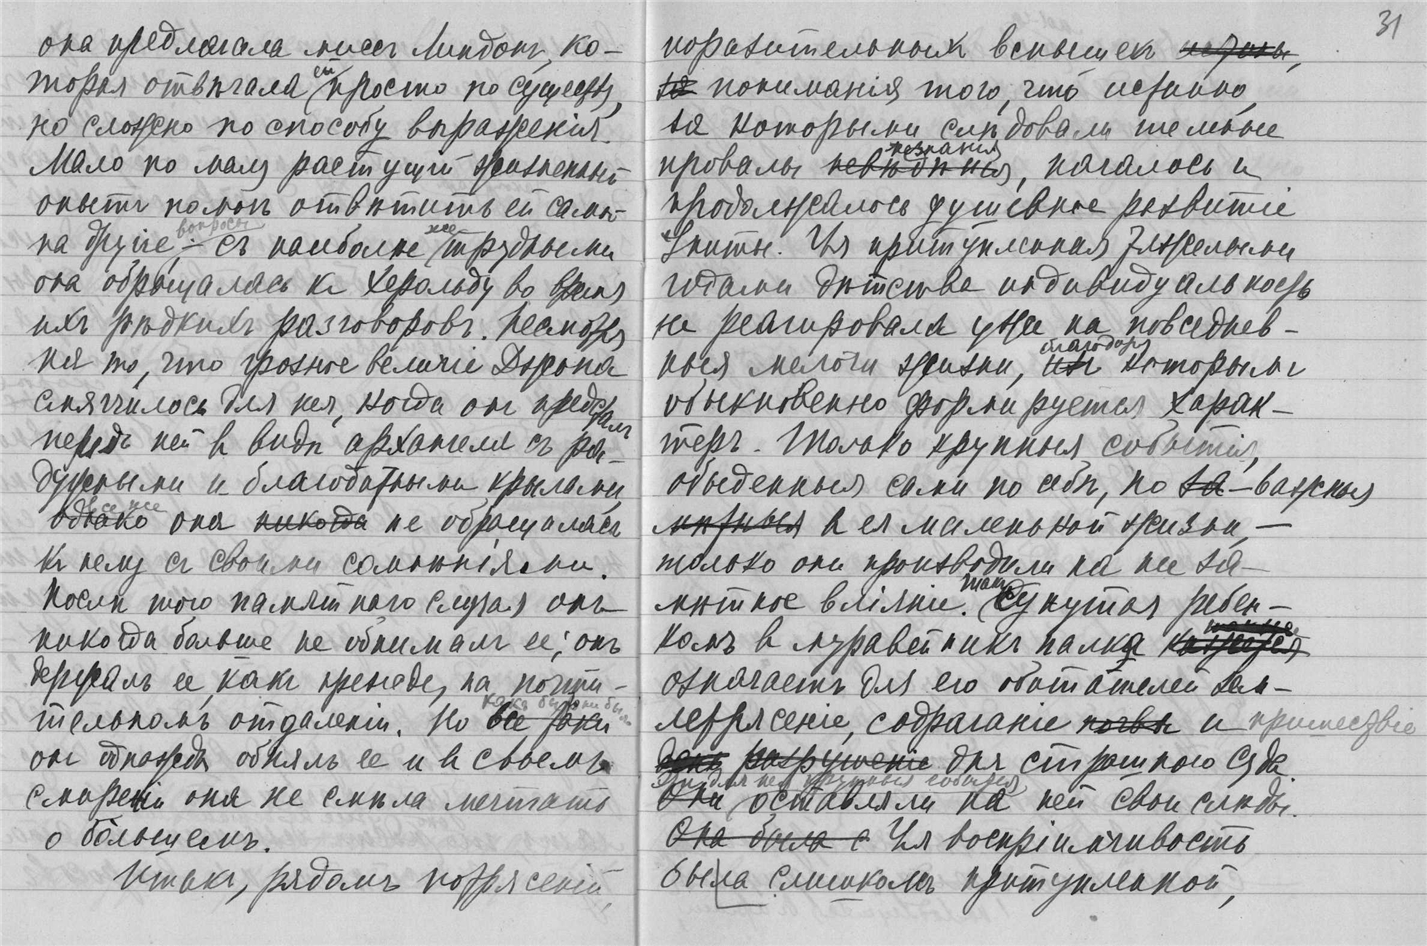 она предлагала миссъ Линдонъ, ко-
торая отвѣчала ей просто по существу,
но сложно по способу выраженія.
Мало по малу растущій жизненный
опытъ помогъ отвѣтить ей самой
на другіе вопросы; съ наиболѣе же трудными
она обращалась къ Херольду во время
ихъ рѣдкихъ разговоровъ. Несмотря
на то, что грозное величіе Дарона
смягчилось для нея, когда онъ предсталъ
передъ ней въ видѣ архангела съ ра-
дужными и благодатными крылами,
однако все же она никогда не обращалась
къ нему съ своими сомнѣніями.
Послѣ того памятнаго случая онъ
никогда больше не обнималъ ее; онъ
держалъ ее, какъ прежде, на почти-
тельномъ отдаленіи. Но все-таки какъ бы то ни было
онъ однажды обнялъ ее и въ своемъ
смиреніи она не смѣла мечтать
о большемъ.
Итакъ, рядомъ потрясеній,
31
поразительныхъ вспышекъ
за пониманія того, что истинно,
за которыми слѣдовали темные
провалы невѣдѣнья незнанія, началось и
продолжалось душевное развитіе
Юниты. Ея притупленная тяжелыми
годами дѣтства индивидуальность
не реагировала уже на повседнев-
ныя мелочи жизни, благодаря которымъ
обыкновенно формируется харак-
теръ. Только крупныя событія,
обыденныя сами по себѣ, но за-важныя
въ ея маленькой жизни,—
только они производили на нее за-
мѣтное вліяніе. Такъ сунутая ребен-
комъ въ муравейникъ палка
означаетъ для его обитателей зем-
летрясеніе, содраганіе почвы и пришествіе
день разрушеніе дня страшнаго суда.
Они Эти для нея крупныя событія оставляли на ней свои слѣды.
Она была с Ея воспріимчивость
была слишкомъ притупленной,